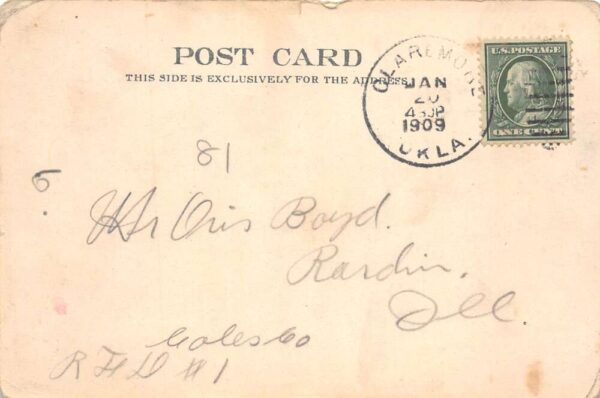 POST CARD
THIS SIDE IS EXCLUSIVELY FOR THE ADDRESS
CLAREMORE
JAN
20
1909
OKLA.
U.S. POSTAGE
ONE CENT
81
9
Mr Oris Boyd.
Rardin.
Ill.
Coles Co
R F D #1